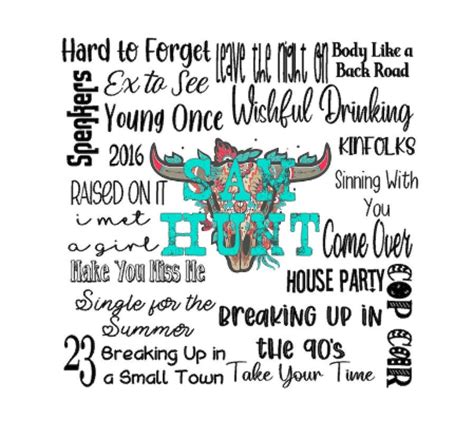 Hard to Forget
Leave the night on
Body Like a
Back Road
Speakers
Ex to See
Young Once
Wishful Drinking
2016
KINFOLKS
SAM
HUNT
RAISED ON IT
Sinning With
You
i met
a girl
Come Over
Make You Miss Me
HOUSE PARTY
COP CAR
Single for the
Summer
BREAKING UP IN
the 90's
23
Breaking Up in
a Small Town
Take Your Time